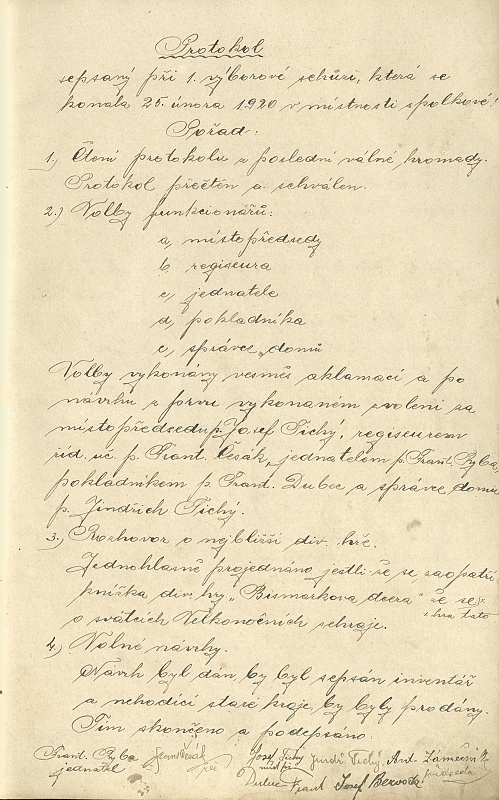 Protokol
sepsaný při 1. výborové schůzi, která se
konala 25. února 1920 v místnosti spolkové!
Pořad:
1.) Čtení protokolu z poslední valné hromady.
Protokol přečtěn a schválen.
2.) Volby funkcionářů:
a, místopředsedy
b, regiseura
c, jednatele
d, pokladníka
e, správce „domů
Volby vykonány vesměs aklamací a po
návrhu z prvu vykonaném zvoleni za
místopředsedu p. Josef Tichý, regiseurem
říd. uč. p. Frant. Česák, jednatelem p. Frant. Ryba,
pokladníkem p. Frant. Dubec a správce domů
p. Jindřich Tichý.
3.) Rozhovor o nejbližší div. hře.
Jednohlasně projednáno jestli-že se zaopatří
knížka div. hry „Bismarkova dcera" že se
o svátcích Velkonočních sehraje.
hra tato
4.) Volné návrhy.
Návrh byl dán, by byl sepsán inventář
a nehodící staré kroje, by byly prodány.
Tím skončeno a podepsáno:
Frant. Ryba
jednatel
Josef Tichý
Jindř. Tichý
Ant. Zámečník
předseda
Dubec Frant
Josef Bervoda